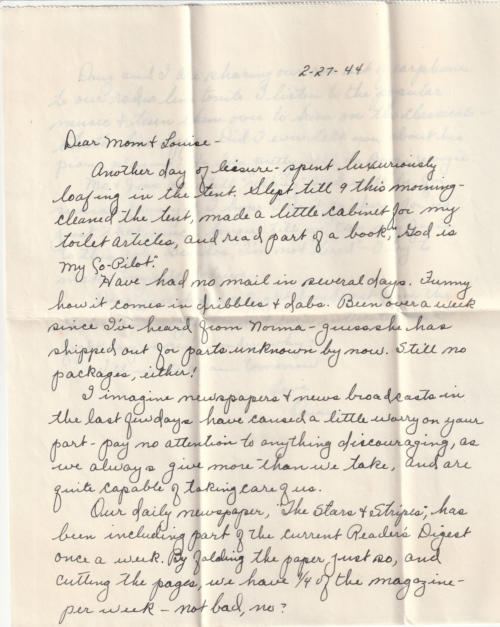 2-27-44
Dear Mom & Louise -
Another day of leisure - spent luxuriously
loafing in the tent. Slept till 9 this morning -
cleaned the tent, made a little cabinet for my
toilet articles, and read part of a book, "God is
my Co-Pilot."
Have had no mail in several days. Funny
how it comes in dribbles & dabs. Been over a week
since I've heard from Norma - guess she has
shipped out for parts unknown by now. Still no
packages, either!
I imagine newspapers & news broadcasts in
the last few days have caused a little worry on your
part - pay no attention to anything discouraging, as
we always give more than we take, and are
quite capable of taking care of us.
Our daily newspaper, "The Stars & Stripes", has
been including part of the current Reader's Digest
once a week. By folding the paper just so, and
cutting the pages, we have 1/4 of the magazine -
per week - not bad, no?